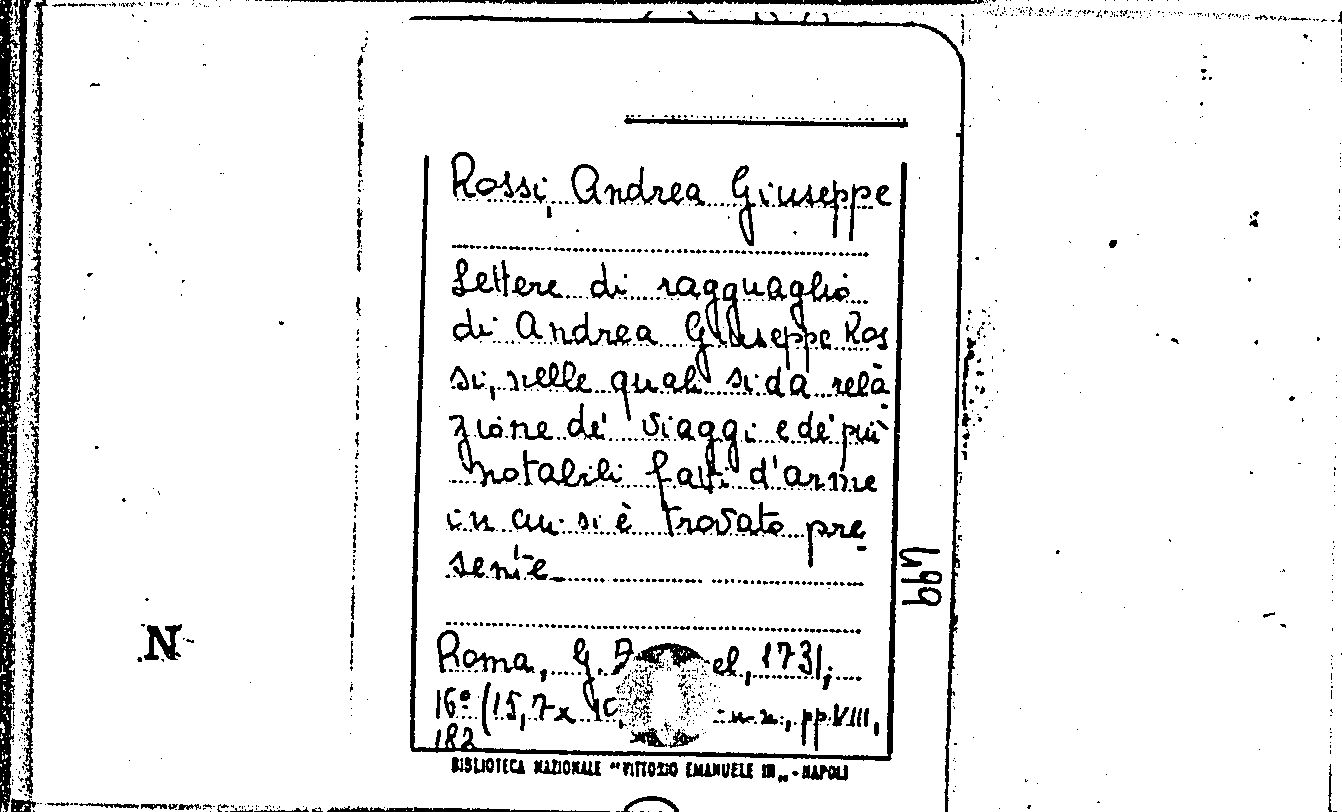 Rossi, Andrea Giuseppe
Lettere di ragguaglio
di Andrea Giuseppe Ros
si, nelle quali si dà rela
zione de' viaggi e de' più
notabili fatti d'arme
in cui si è trovato pre
sente
499
N
Roma, G. el, 1731,
16º (15,7 x n.n., pp. VIII,
182
BIBLIOTECA NAZIONALE "VITTORIO EMANUELE III" - NAPOLI